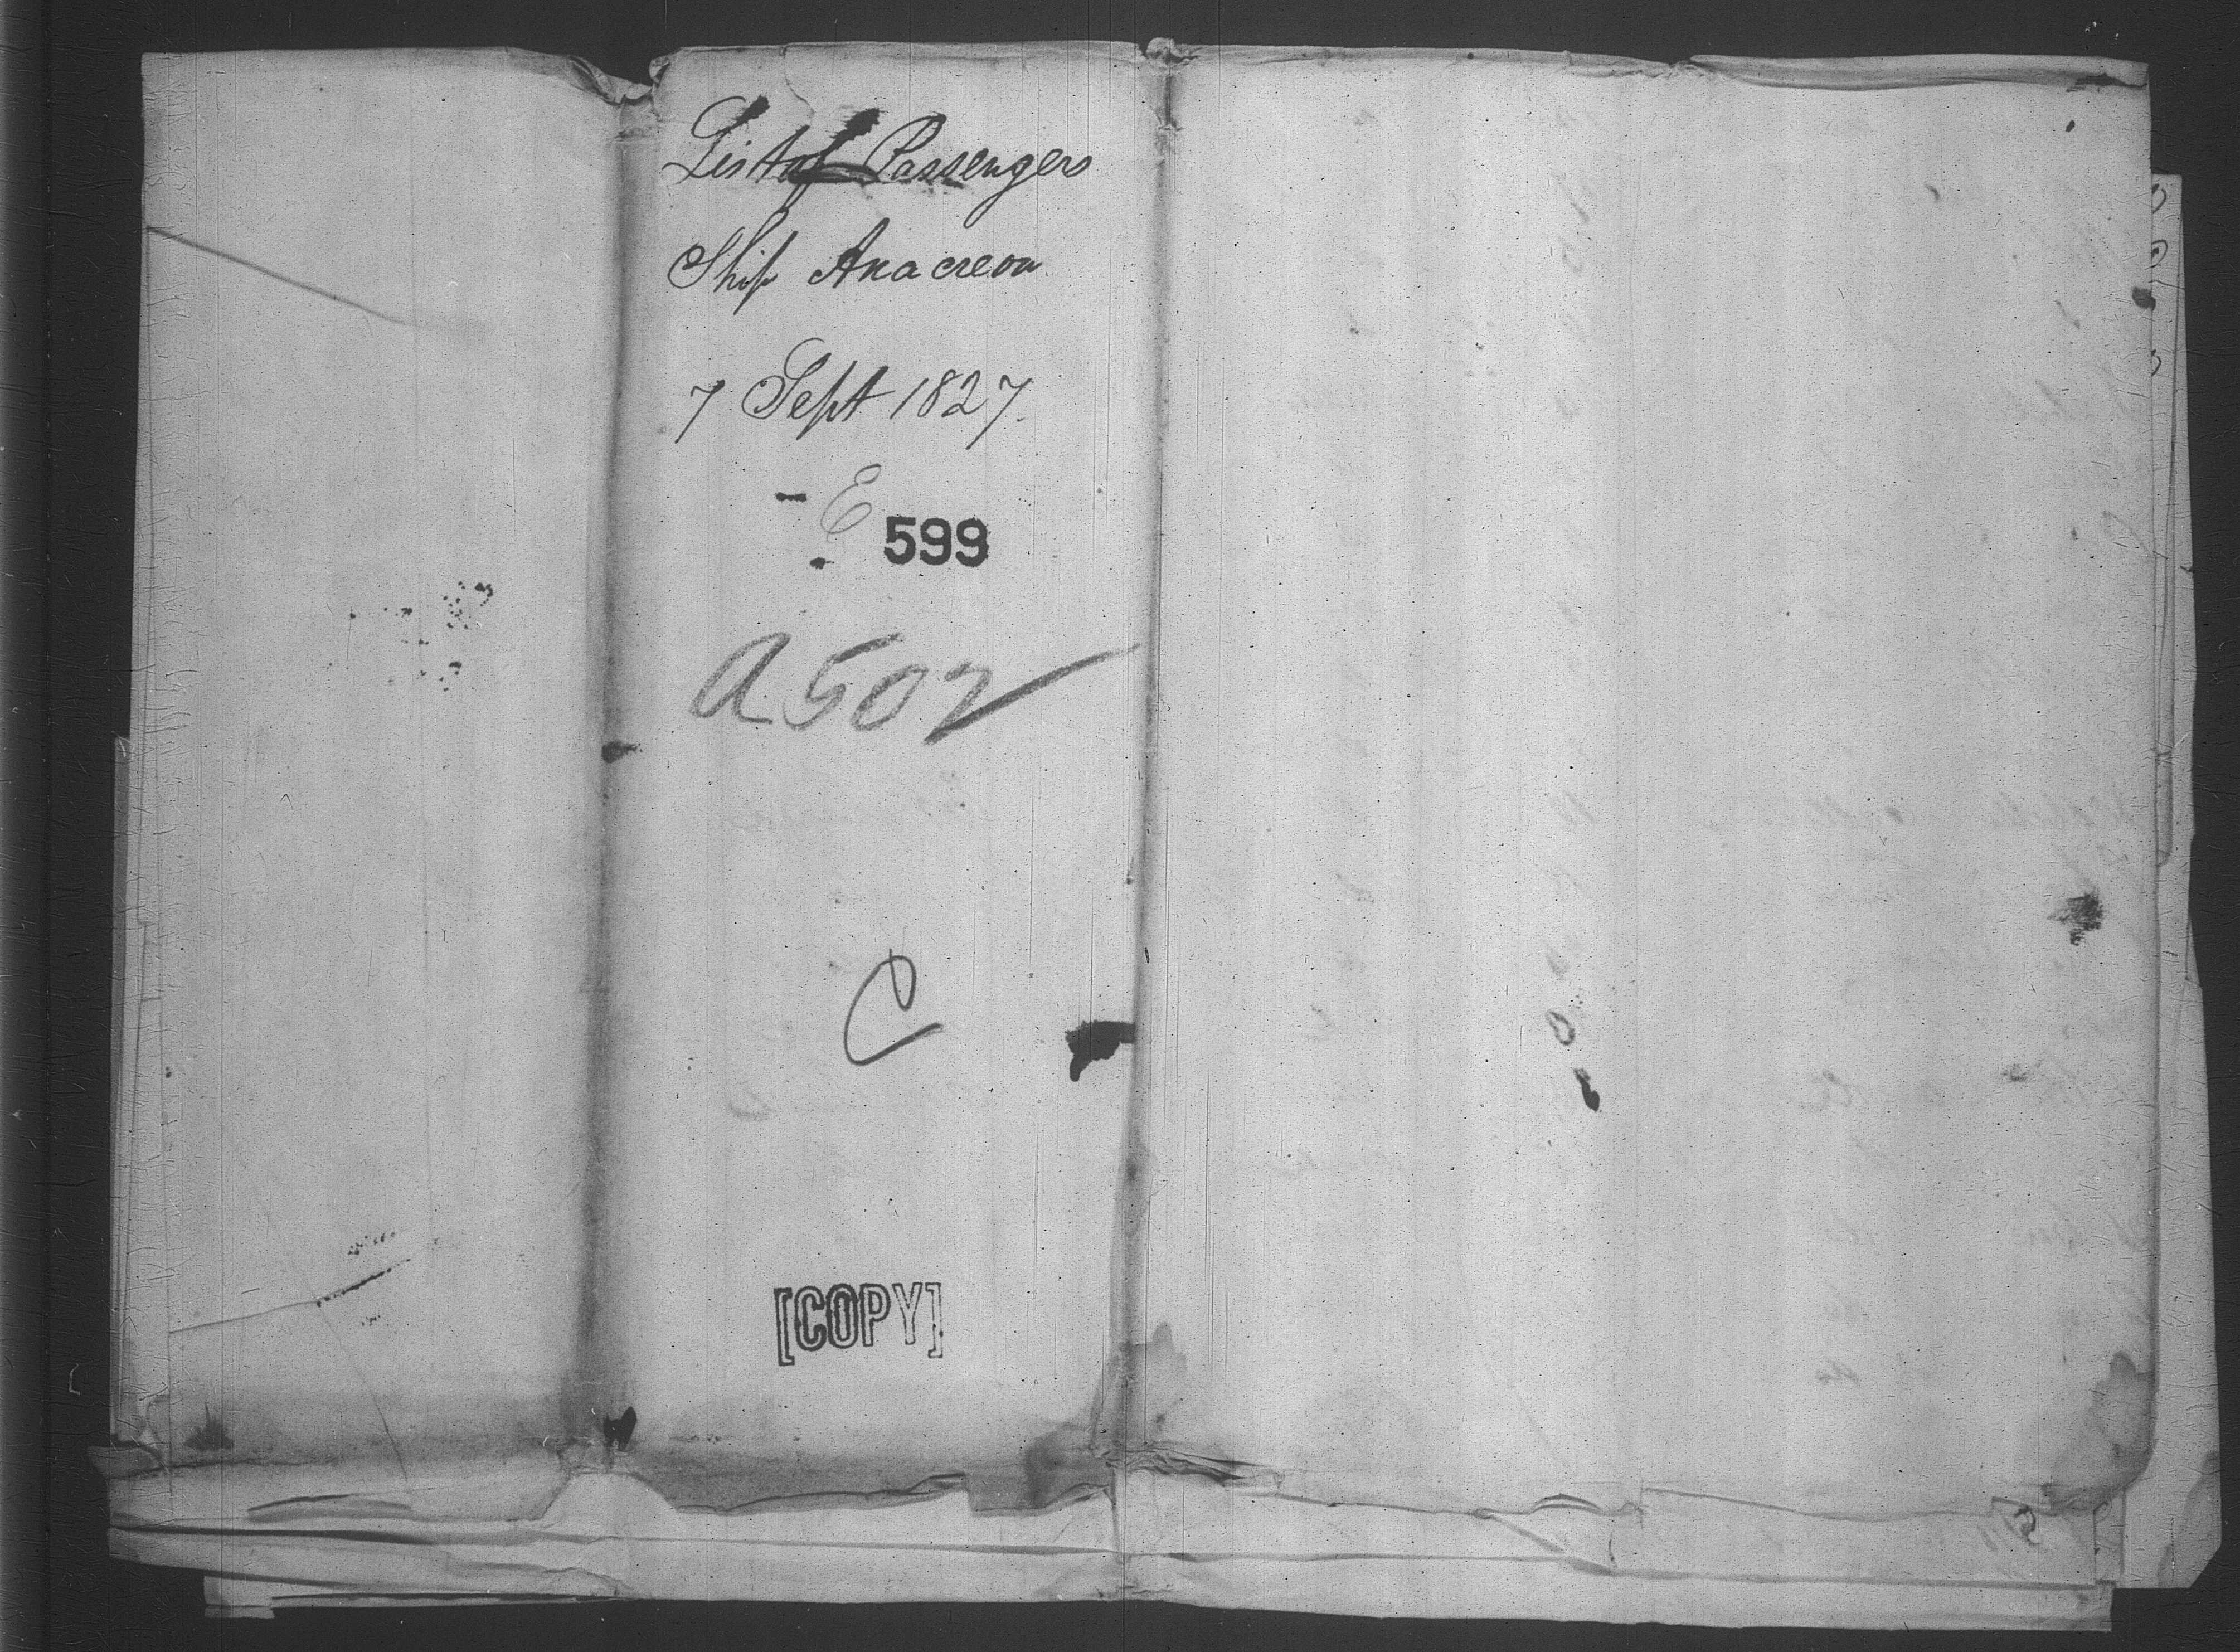 List of Passengers
Ship Anacreon
7 Sept 1827.
E 599
A 502
C
[COPY]